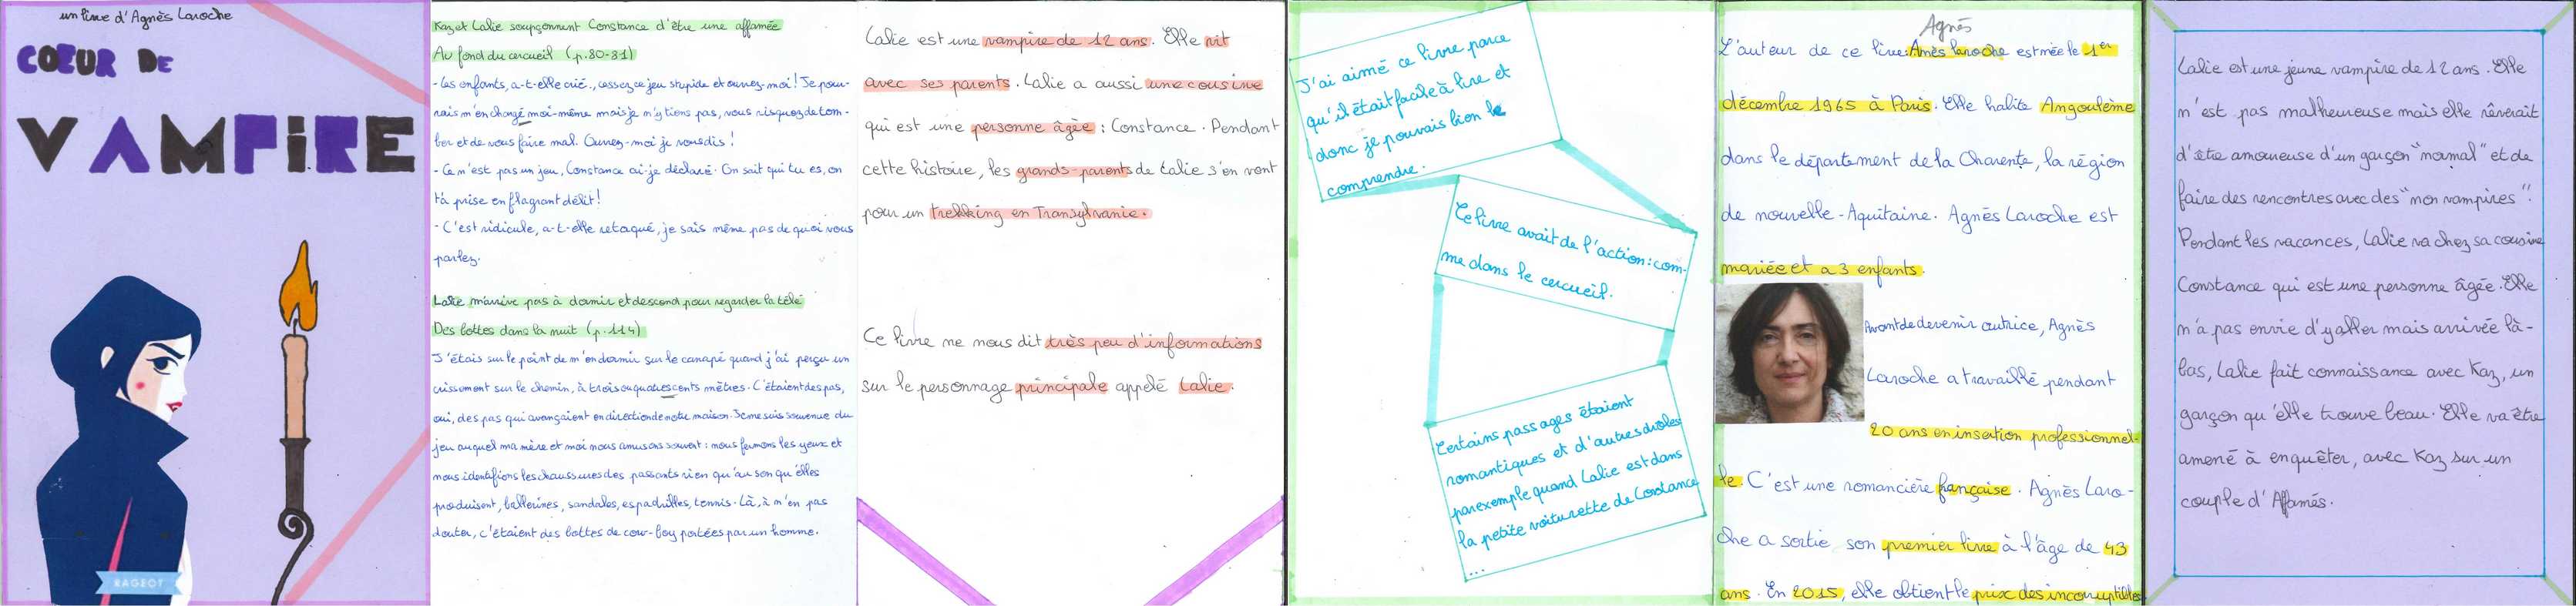 un livre d'Agnès Laroche
COEUR DE
VAMPIRE
RAGEOT
Kaz et Lalie soupçonnent Constance d'être une affamée
Au fond du cercueil (p.80-81)
- Les enfants, a-t-elle crié, cessez ce jeu stupide et ouvrez-moi! Je pour-
rais m'en chargé moi-même mais je n'y tiens pas, vous risquez de tom-
ber et de vous faire mal. Ouvrez-moi je vous dis!
- Ce n'est pas un jeu, Constance ai-je déclaré. On sait qui tu es, on
t'à prise en flagrant délit!
- C'est ridicule, a-t-elle retoqué, je sais même pas de quoi vous
parlez.
Lalie n'arrive pas à dormir et descend pour regarder la télé
Des bottes dans la nuit (p.114)
J'étais sur le point de m'endormir sur le canapé quand j'ai perçu un
crissement sur le chemin, à trois ou quatres cents mètres. C'étaient des pas,
oui, des pas qui avançaient en direction de notre maison. Je me suis souvenue du
jeu auquel ma mère et moi nous amusons souvent : nous fermons les yeux et
nous identifions les chaussures des passants rien qu'au son qu'elles
produisent, ballerines, sandales, espadrilles, tennis. Là, à n'en pas
douter, c'étaient des bottes de cow-boy portées par un homme.
Lalie est une vampire de 12 ans. Elle vit
avec ses parents. Lalie a aussi une cousine
qui est une personne âgée : Constance. Pendant
cette histoire, les grands-parents de Lalie s'en vont
pour un trekking en Transylvanie.
Ce livre ne nous dit très peu d'informations
sur le personnage principale appelé Lalie.
J'ai aimé ce livre parce
qu'il était facile à lire et
donc je pouvais bien le
comprendre.
Ce livre avait de l'action: com-
me dans le cercueil.
Certains passages étaient
romantiques et d'autres drôles
par exemple quand Lalie est dans
la petite voiturette de Constance
...
Agnès
L'auteur de ce livre: Annès Laroche est née le 1er
décembre 1965 à Paris. Elle habite Angoulème
dans le département de la Charente, la région
de nouvelle-Aquitaine. Agnès Laroche est
mariée et a 3 enfants.
Avant de devenir autrice, Agnès
Laroche a travaillé pendant
20 ans en insertion professionnel-
le. C'est une romancière française. Agnès Laro-
che a sortie son premier livre à l'âge de 43
ans. En 2015, elle obtient le prix des incorruptibles
Lalie est une jeune vampire de 12 ans. Elle
n'est pas malheureuse mais elle rêverait
d'être amoureuse d'un garçon "normal" et de
faire des rencontres avec des "non vampires".
Pendant les vacances, Lalie va chez sa cousine
Constance qui est une personne âgée. Elle
n'a pas envie d'y aller mais arrivée là-
bas, Lalie fait connaissance avec Kaz, un
garçon qu'elle trouve beau. Elle va être
amené à enquêter, avec Kaz sur un
couple d'Affamés.